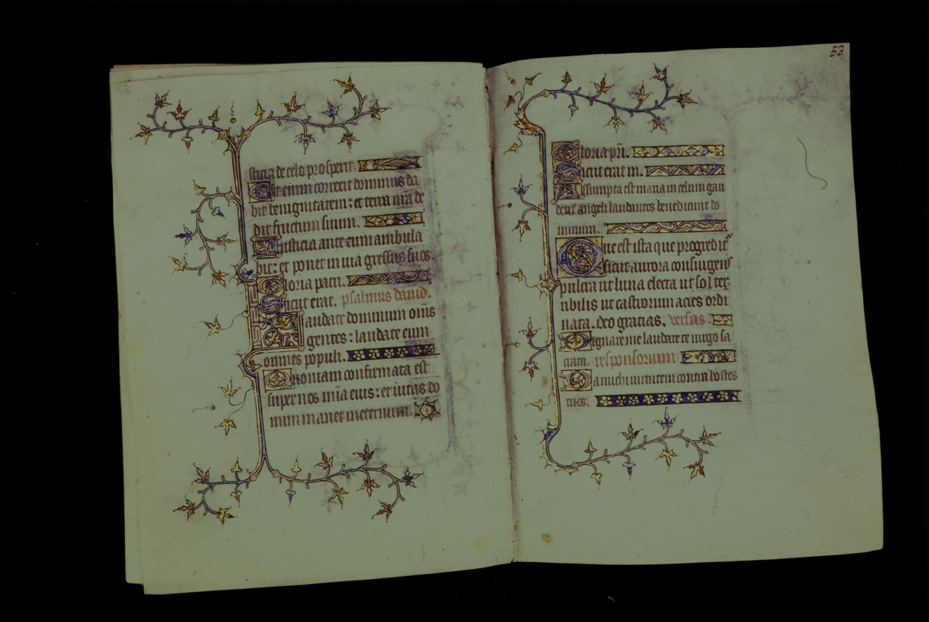 sticia de celo prospexit.
Et enim correcit dominus da
bit benignitatem: et terra nr̃a de
dit fructum suum.
Justicia ante eum ambula
bit: et ponet in via gressus suos
Gloria patri.
Sicut erat. psalmus david.
Laudate dominum om̃s
gentes: laudate eum
omnes populi.
Quoniam confirmata est
super nos mĩa eius: et ueritas do
mini manet ineternum.
53
Gloria pr̃i.
Sicut erat in.
Assumpta est maria in celum gau
dent angeli laudantes benedicunt do
minum.
Que est ista que progredit᷑
sicut aurora consurgens
pulcra ut luna electa ut sol ter
ribilis ut castrorum acies ordi
nata. deo gracias. versus
Dignare me laudare te uirgo sa
cratam. responsorium
Da michi uirtutem contra hostes
tuos.